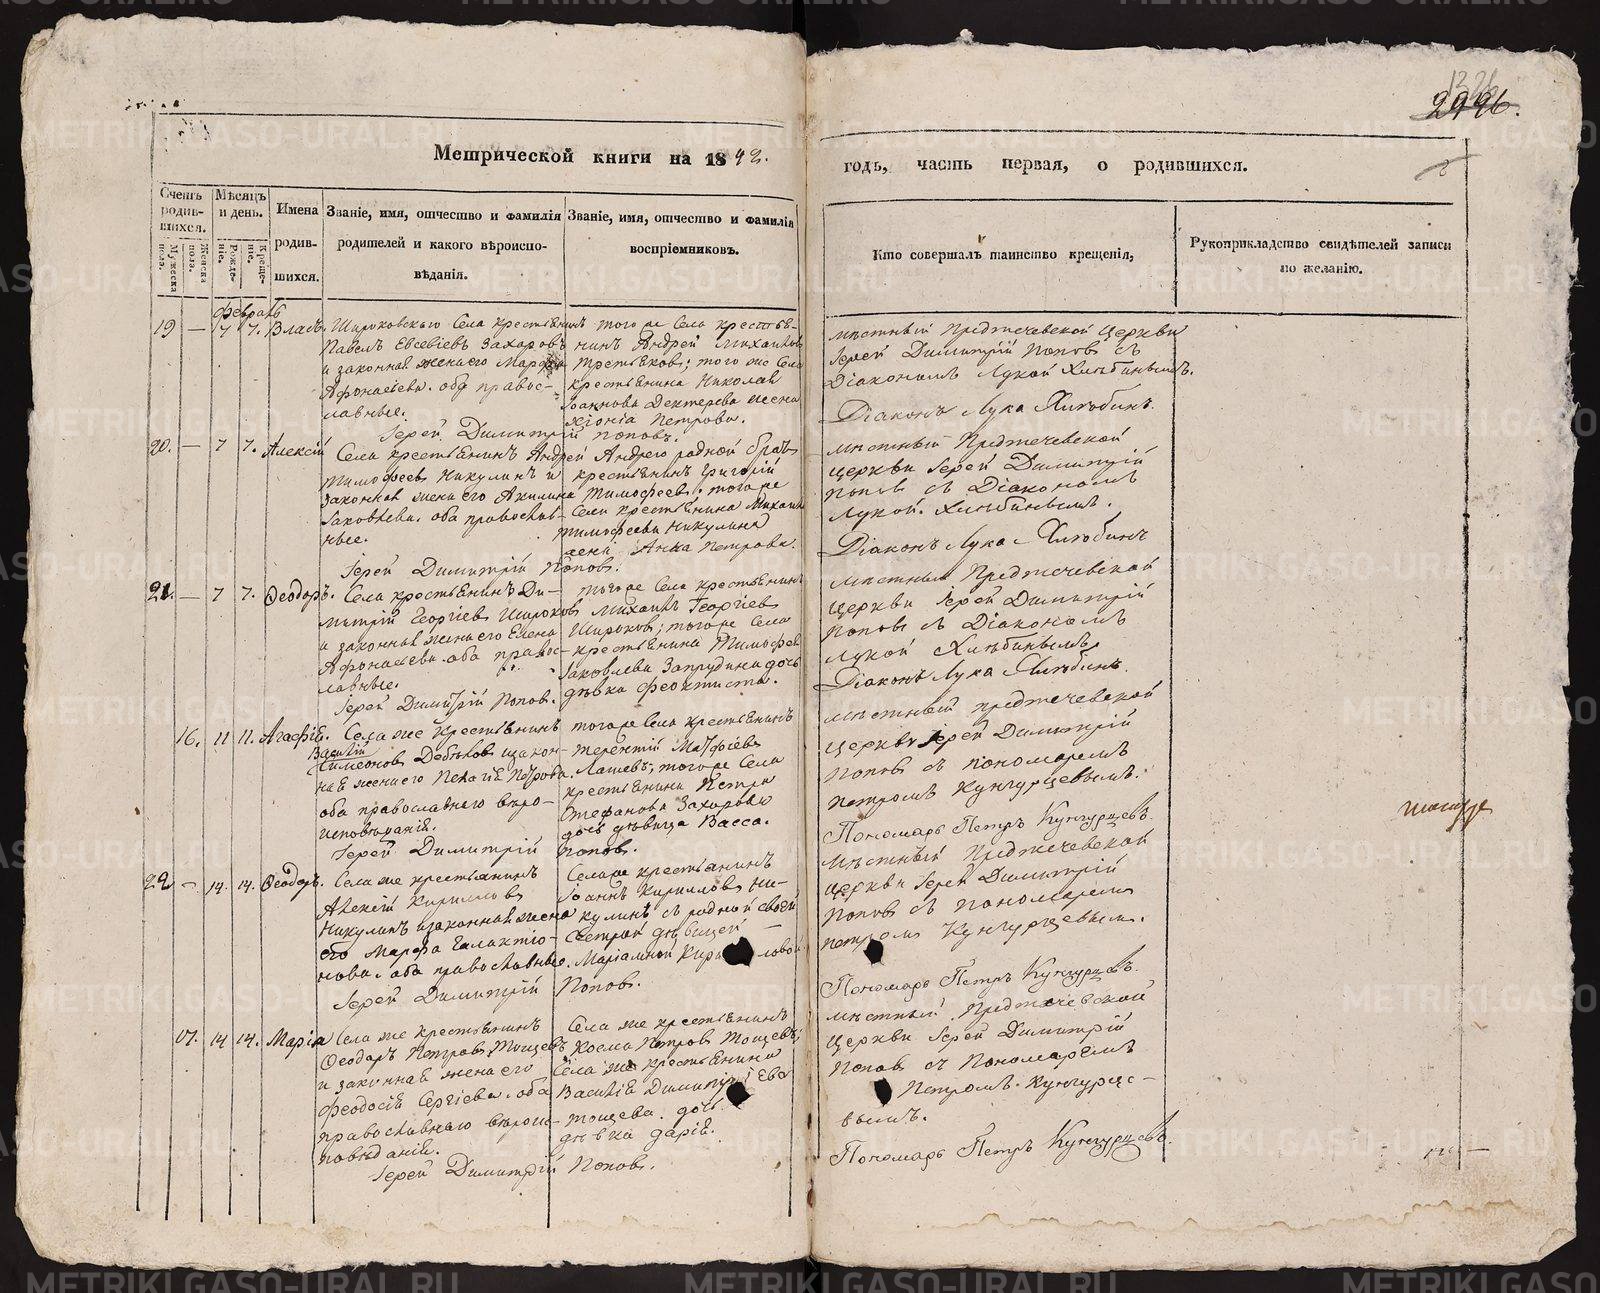 2996.
Метрической книги на 1842.
годъ, часть первая, о родившихся.
Счетъ родив-шихся.
Мужеска пола.
Женска пола.
Мѣсяцъ и день.
Рожде-ніе.
Креще-ніе.
Имена родив-шихся.
Званіе, имя, отчество и фамилія
родителей и какого вѣроиспо-
вѣданія.
Званіе, имя, отчество и фамилія
воспріемниковъ.
Кто совершалъ таинство крещенія,
Рукоприкладство свидѣтелей записи
по желанію.
февраль
19 — 7 7. Власъ.
Широковскаго Села крестьянинъ
Павелъ Евсевіевъ Захаровъ
и законная жена его Марфа
Афонасьева. оба правос-
лавные.
того же Села крестья-
нинъ Андрей Михаиловъ
Третьяковъ; того же Села
крестьянина Николая
Іоаннова Дектерева жена
Хіонія Петрова.
Іерей Димитрій Поповъ.
мѣстный Предтечевской Церкви
Іерей Димитрій Поповъ съ
Діакономъ Лукой Хлѣбинымъ.
Діаконъ Лука Хлѣбинъ.
20. — 7 7. Алексій
Села крестьянинъ Андрей
Тимофеевъ Никулинъ и
законная жена его Акилина
Іаковлева. оба православ-
ные.
Андрея родной братъ
крестьянинъ Григорій
Тимофеевъ. того же
Села крестьянина Михаила
Тимофеева Никулина
жена Анна Петрова.
Іерей Димитрій Поповъ.
мѣстный Предтечевской
церкви Іерей Димитрій
Поповъ съ Діакономъ
Лукой Хлѣбинымъ.
Діаконъ Лука Хлѣбинъ
21. — 7 7. Ѳеодоръ.
Села крестьянинъ Ди-
митрій Георгіевъ Широковъ
и законная жена его Елена
Афонасьева. оба правос-
лавные.
того же Села крестьянинъ
Михаилъ Георгіевъ
Широковъ; того же Села
крестьянина Тимофея
Іаковлева Запрудина дочь
дѣвка Феоктиста.
Іерей Димитрій Поповъ.
мѣстный Предтечевской
церкви Іерей Димитрій
Поповъ съ Діакономъ
Лукой Хлѣбинымъ
Діаконъ Лука Хлѣбинъ.
16. 11 11. Агафія.
Села же крестьянинъ
Василій
Симеоновъ Дебѣловъ и закон-
ная жена его Пелагія Петрова.
оба православнаго вѣро-
исповѣданія.
того же Села крестьянинъ
Терентій Матфіевъ
Лашевъ; того же Села
крестьянина Петра
Стефанова Захарова
дочь дѣвица Васса.
Іерей Димитрій Поповъ.
мѣстный предтечевской
церкви Іерей Димитрій
Поповъ съ пономаремъ
Петромъ Кунгурцевымъ.
Пономарь Петръ Кунгурцевъ.
22 — 14. 14. Ѳеодоръ.
Села же крестьянинъ
Алексій Кирилловъ
Никулинъ и законная жена
его Марфа Галактіо-
нова. оба православные.
Села же крестьянинъ
Іоаннъ Кирилловъ Ни-
кулинъ съ родной своей
Сестрой дѣвицей —
Маріамной Кирилловой
Іерей Димитрій Поповъ.
Мѣстный Предтечевской
церкви Іерей Димитрій
Поповъ съ Пономаремъ
Петромъ Кунгурцевымъ.
Пономарь Петръ Кунгурцевъ.
17. 14 14. Марія
Села же крестьянинъ
Ѳеодоръ Петровъ Тощевъ
и законная жена его
Феодосія Сергіева. оба
православнаго вѣроис-
повѣданія.
Села же крестьянинъ
Косма Петровъ Тощевъ;
Села же крестьянина
Василія Димитріева
Тощева дочь
дѣвка Дарія.
Іерей Димитрій Поповъ.
мѣстный Предтечевской
Церкви Іерей Димитрій
Поповъ съ Пономаремъ
Петромъ Кунгурце-
вымъ.
Пономарь Петръ Кунгурцевъ.
METRIKI.GASO-URAL.RU